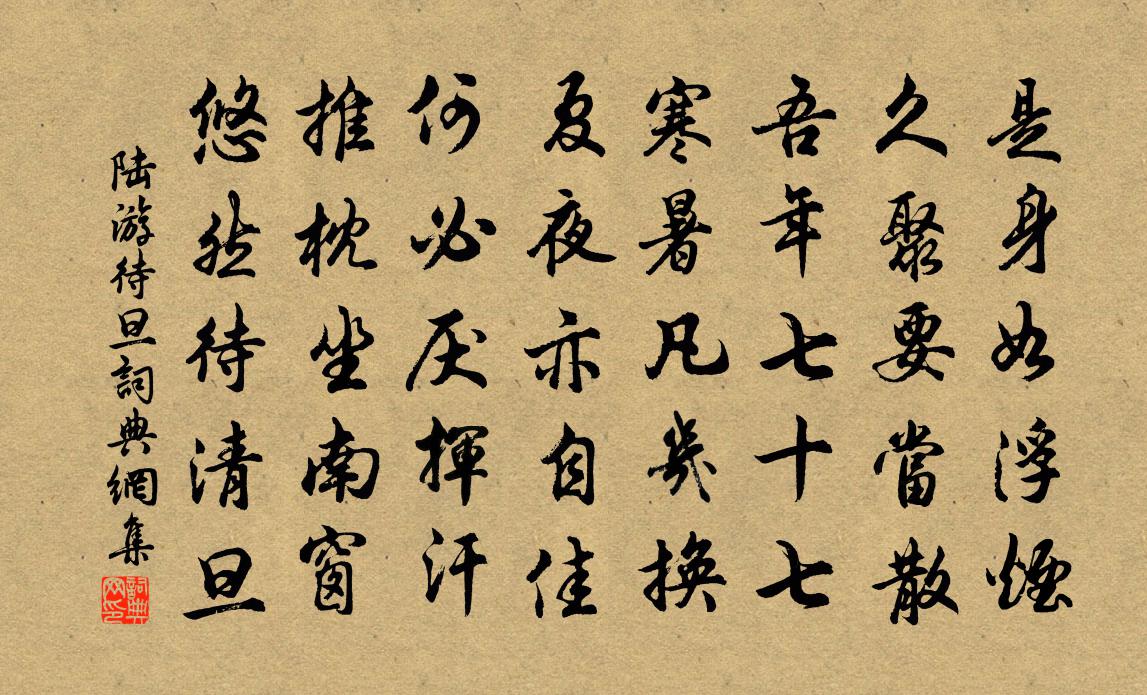 是身如浮煙
久聚要當散
吾年七十七
寒暑凡幾換
夏夜亦自佳
何必厌揮汗
推枕坐南窗
悠然待清旦
陆游待旦詞典網集
詞典
网印